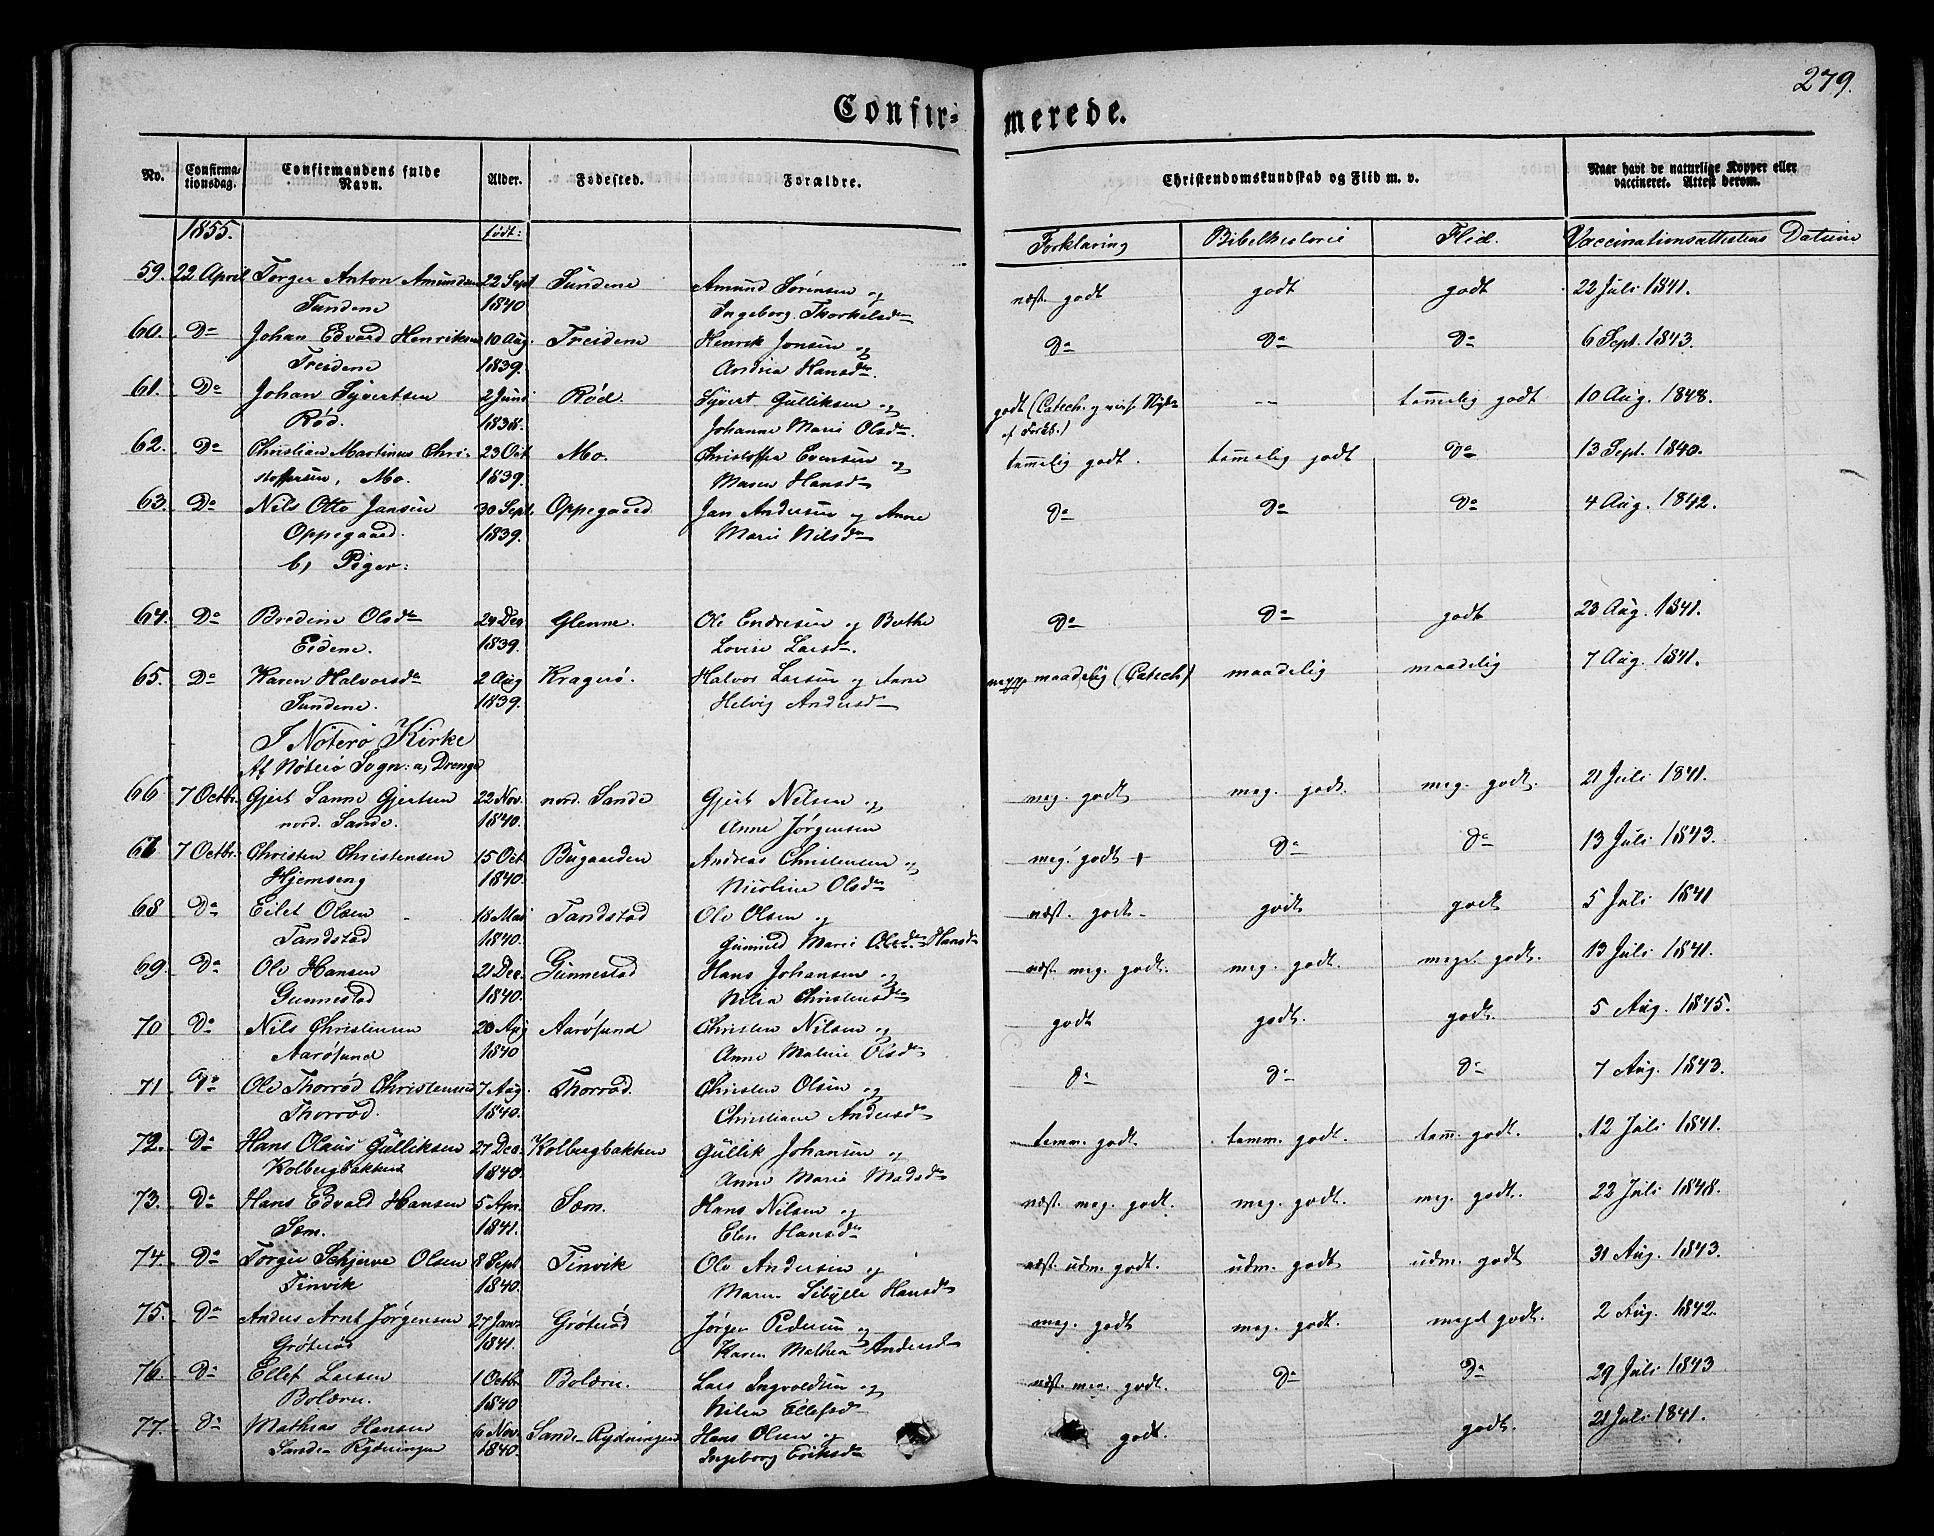 279.
Confir- merede.
No. Confirmationsdag. Confirmandens fulde Navn. Alder. Fødested. Forældre. Christendomskundskab og Flid m. v. Naar havt de naturlige Kopper eller vaccineret. Attest derom.
1855. født: Forklaring Bibelhistorie Flid. Vaccinationsattestens Datum
59. 22 April Torger Anton Amundsen 22 Sept Sundene Amund Sørensen og næst. godt godt godt 22 Juli 1841.
Sundene 1840 Ingeborg Thorkelsdr
60. Do Johan Edvard Henriksen 10 Aug. Treidene Henrik Jonsen og Do Do Do 6 Sept. 1843.
Treidene 1839. Andrea Hansdr.
61. Do Johan Syvertsen 2 Juni Rød. Syvert Gulliksen og godt (Catech. og -- temmelig godt 10 Aug. 1848.
Rød. 1838. Johanne Marie Olsdr. af Forkl.)
62. Do Christian Martinus Chri- 23 Oct Mo. Christoffer Evensen og temmelig godt. temmelig godt Do 13 Sept. 1840.
stoffersen, Mo. 1839. Maren Hansdr
63. Do Nils Otto Jansen 30 Sept. Oppegaard Jan Andersen og Anne Do Do Do 4 Aug. 1842.
Oppegaard. 1839. Marie Nilsdr
b, Piger:
64. Do Bredine Olsdr 24 Dec Glenne. Ole Endresen og Berthe Do Do godt 23 Aug. 1841.
Eidene. 1839. Lovise Larsdr.
65. Do Karen Halvorsdr 2 Aug Kragerø. Halvor Larsen og Anne maadelig (Catech) maadelig maadelig 7 Aug. 1841.
Sundene. 1839. Helvig Andersdr
I Nøterø Kirke
Af Nøterø Sogn: a, Drenge
66 7 Octbr. Gjert Sanne Gjertsen 22 Nov. nord. Sande Gjert Nilsen og meg. godt meg. godt. meg. godt. 21 Juli 1841.
nord. Sande. 1840. Anne Jørgensen
67 7 Octbr. Christen Christensen 15 Oct. Bugaarden Andreas Christensen og meg. godt + Do Do 13 Juli 1843.
Hjemseng 1840. Nicoline Olsdr
68 Do Eilet Olsen 18 Mai Tandstad Ole Olsen og næst. godt godt godt 5 Juli 1841
Tandstad 1840. Gunnild Marie Olsdr. Hansdr
69. Do Ole Hansen 21 Dec. Gunnestad Hans Johansen og næst. meg. godt. meg. godt. meget godt. 13 Juli 1841.
Gunnestad 1840. Nilea Christensdr
70 Do Nils Christensen 20 Aug Aarøsund Christen Nilsen og godt godt. godt. 5 Aug. 1845.
Aarøsund 1840 Anne Maline Olsdr
71 Do Ole Thorrød Christensen 7 Aug. Thorrød. Christen Olsen og Do Do Do 7 Aug. 1843.
Thorrød. 1840. Christiane Andersdr
72. Do Hans Olaus Gulliksen 27 Dec. Kolbergbakken Gullik Johansen og temm. godt. temm. godt. tem. godt. 12 Juli 1841.
Kolbergbakken 1840. Anne Marie Madsdr
73. Do Hans Edvald Hansen 5 Apr. Sem. Hans Nilsen og næst. meg. godt. meg. godt. meg. godt. 22 Juli 1848.
Sem. 1841. Elen Hansdr
74. Do Torger Schjerve Olsen 8 Sept. Tinvik Ole Andersen og næst. udm. godt. udm. godt udm. godt 31 Aug. 1843.
Tinvik 1840. Maren Sibylle Hansdr
75. Do Anders Arnt Jørgensen 27 Janr. Grøterød Jørgen Pedersen og meg. godt meg. godt. meget godt. 2 Aug. 1842.
Grøterød 1841. Karen Mathea Andersdr
76. Do Ellef Larsen 1 Octbr Bolærn. Lars Ingvoldsen og næst. meg. godt. Do Do 29 Juli 1843
Bolærn. 1840 Nilea Ellefsdr
77. Do Mathias Hansen 6 Nov. Sande-Rydningen Hans Olsen og godt. godt. 21 Juli 1841.
Sande-Rydningen 1840. Ingeborg Eriksdr